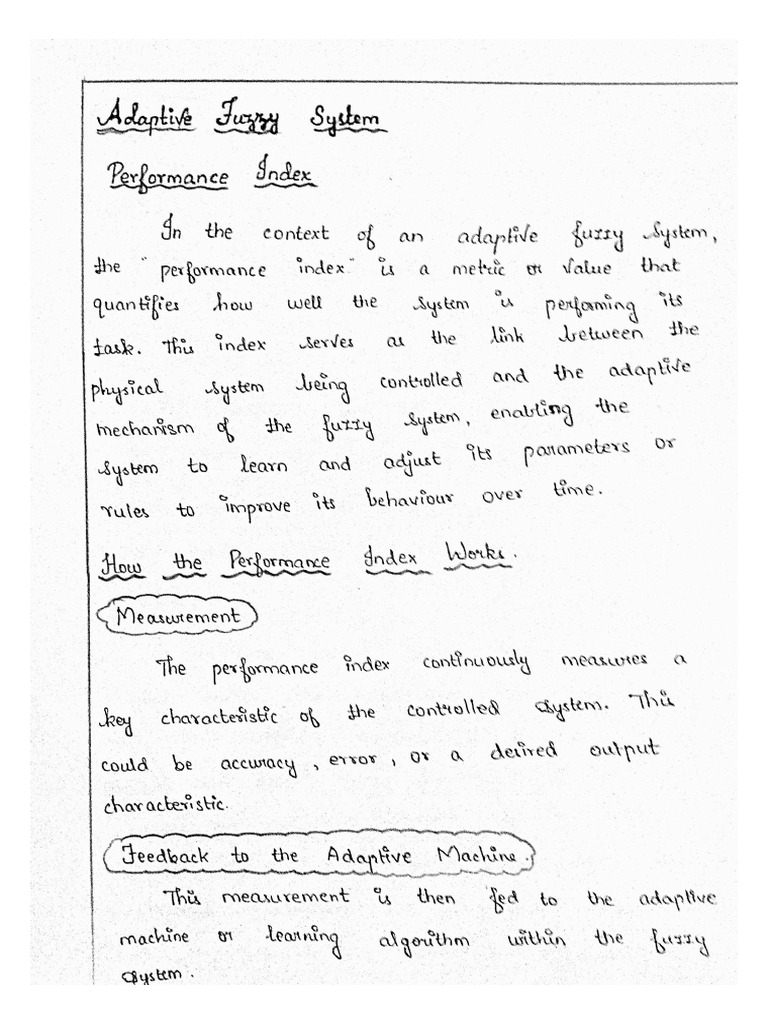 Adaptive Fuzzy System
Performance Index
In the context of an adaptive fuzzy system,
the "performance index" is a metric or value that
quantifies how well the system is performing its
task. This index serves as the link between the
physical system being controlled and the adaptive
mechanism of the fuzzy system, enabling the
system to learn and adjust its parameters or
rules to improve its behaviour over time.
How the Performance Index Works.
Measurement
The performance index continuously measures a
key characteristic of the controlled system. This
could be accuracy, error, or a desired output
characteristic.
Feedback to the Adaptive Machine.
This measurement is then fed to the adaptive
machine or learning algorithm within the fuzzy
system.